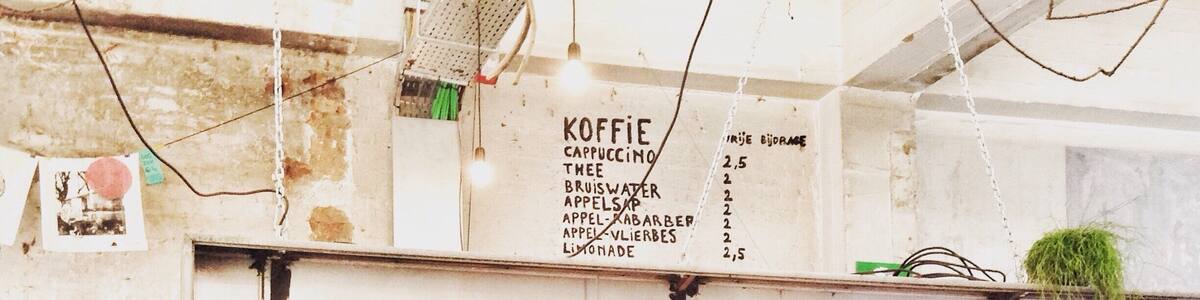 KOFFiE VRIJE BIJDRAGE
CAPPUCCiNO 2,5
THEE 2
BRUiSWATER 2
APPELSAP 2
APPEL-RABARBER 2
APPEL-VLIERBES 2
LiMONADE 2,5